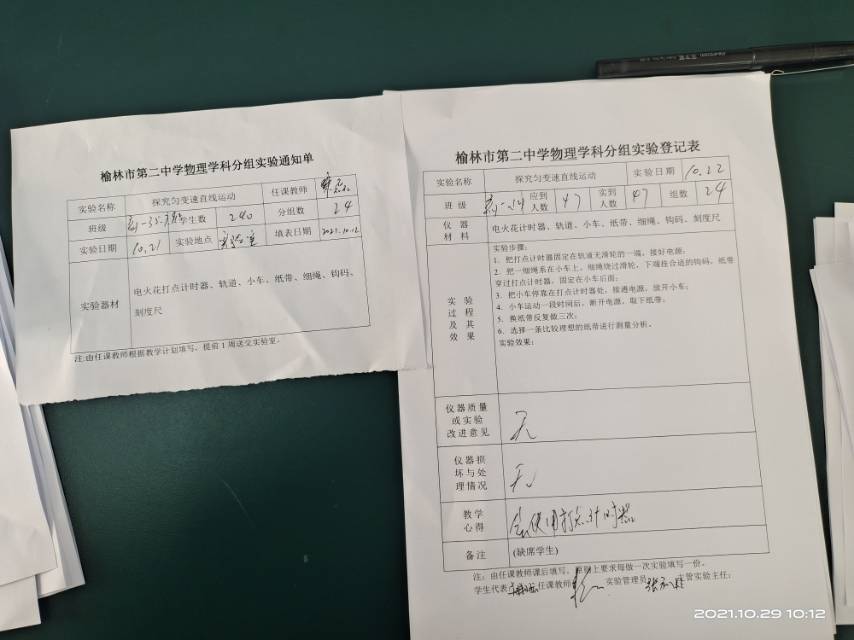 榆林市第二中学物理学科分组实验通知单
实验名称 探究匀变速直线运动 任课教师
班级 学生数 240 分组数 24
实验日期 10.21 实验地点 填表日期 2021.10.12
实验器材 电火花打点计时器、轨道、小车、纸带、细绳、钩码、
刻度尺
注:由任课教师根据教学计划填写,提前1周送交实验室。
榆林市第二中学物理学科分组实验登记表
实验名称 探究匀变速直线运动 实验日期 10.22
班级 应到人数 47 实到人数 47 组数 24
仪器材料 电火花计时器、轨道、小车、纸带、细绳、钩码、刻度尺
实验过程及其效果
实验步骤:
1. 把打点计时器固定在轨道无滑轮的一端,接好电源;
2. 把一细绳系在小车上,细绳绕过滑轮,下端挂合适的钩码,纸带
穿过打点计时器,固定在小车后面;
3. 把小车停靠在打点计时器处,接通电源,放开小车;
4. 小车运动一段时间后,断开电源,取下纸带;
5. 换纸带反复做三次;
6. 选择一条比较理想的纸带进行测量分析。
实验效果:
仪器质量或实验改进意见 无
仪器损坏与处理情况 无
教学心得 会使用打点计时器
备注 (缺席学生)
注:由任课教师课后填写,原则上要求每做一次实验填写一份。
学生代表 任课教师 实验管理员 主管实验主任:
2021.10.29 10:12